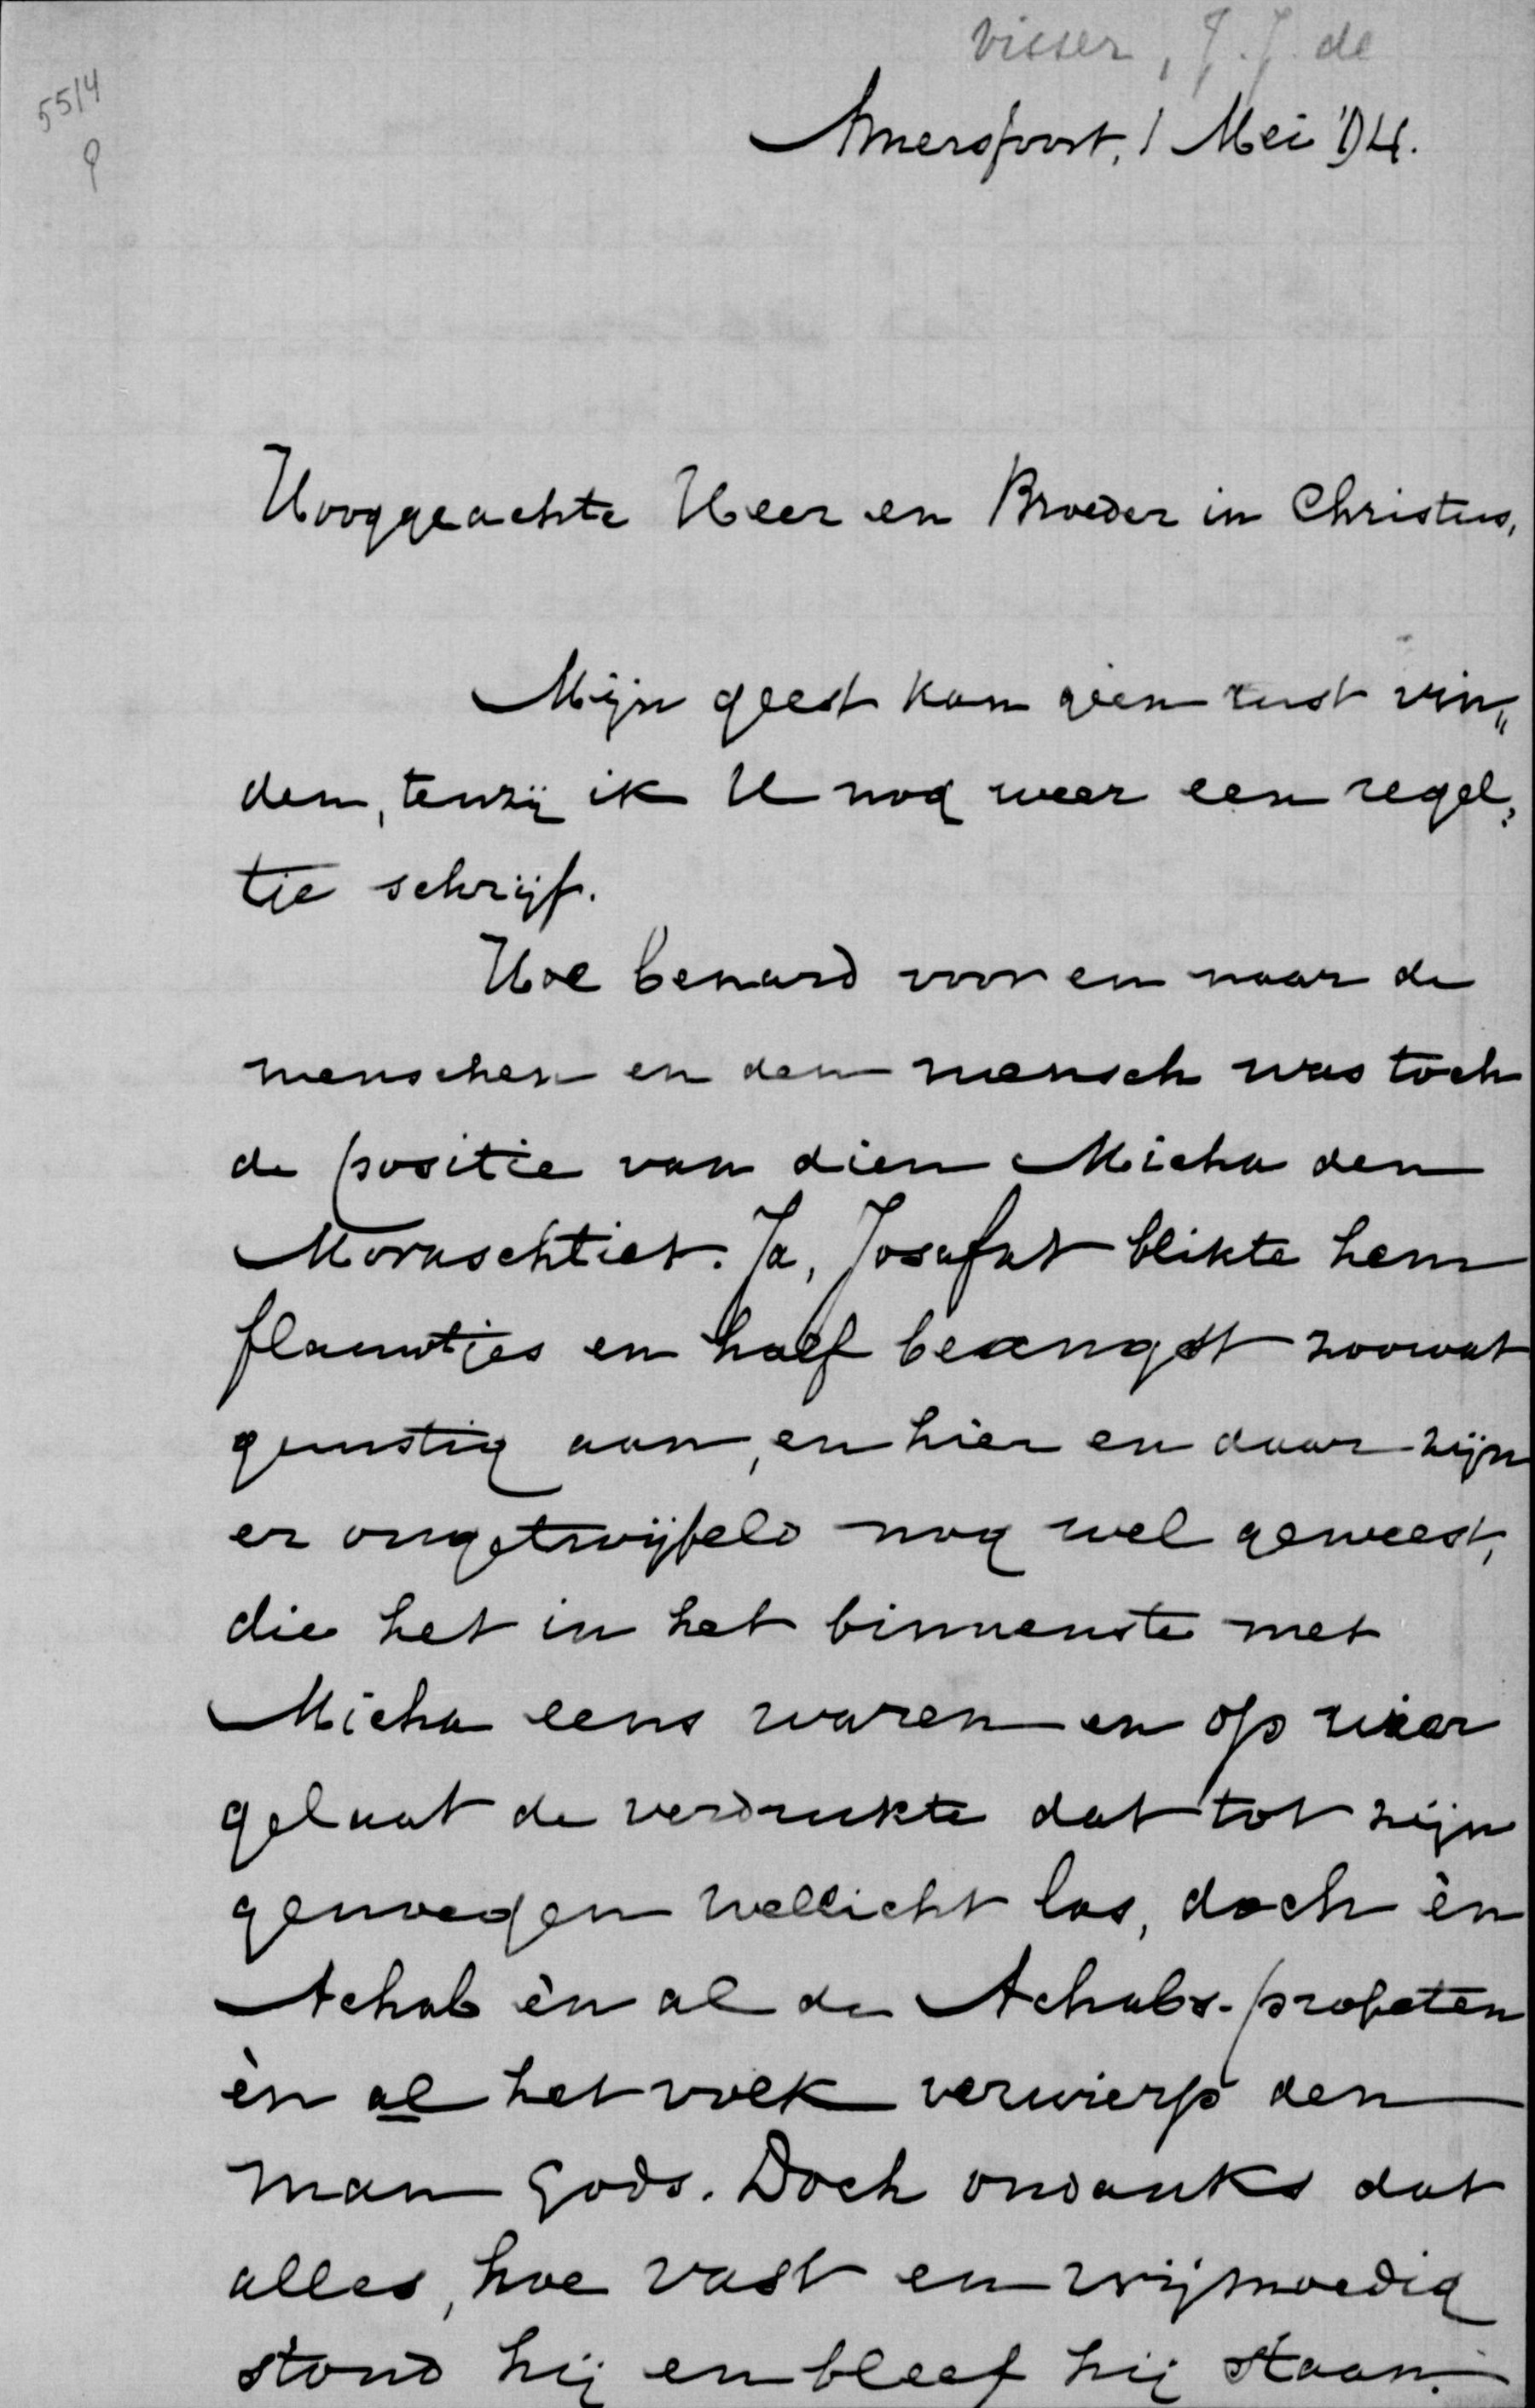 Visser, J. J. de
5514
Amersfoort, 1 Mei '94.
Hooggeachte Heer en Broeder in Christus,
Mijn geest kan geen rust vin„
den, tenzij ik U nog weer een regel„
tje schrijf.
Hoe benard voor en naar de
menschen en den mensch was toch
de positie van dien Micha den
Moraschtiet. Ja, Josafat blikte hem
flauwtjes en half beangst zoowat
gunstig aan, en hier en daar zijn
er ongetwijfeld nog wel geweest,
die het in het binnenste met
Micha eens waren en op wier
gelaat de verdrukte dat tot zijn
genoegen wellicht las, doch èn
Achab èn al de Achabs-profeten
èn al het volk verwierp den
man Gods. Doch ondanks dat
alles, hoe vast en vrijmoedig
stond hij en bleef hij staan.